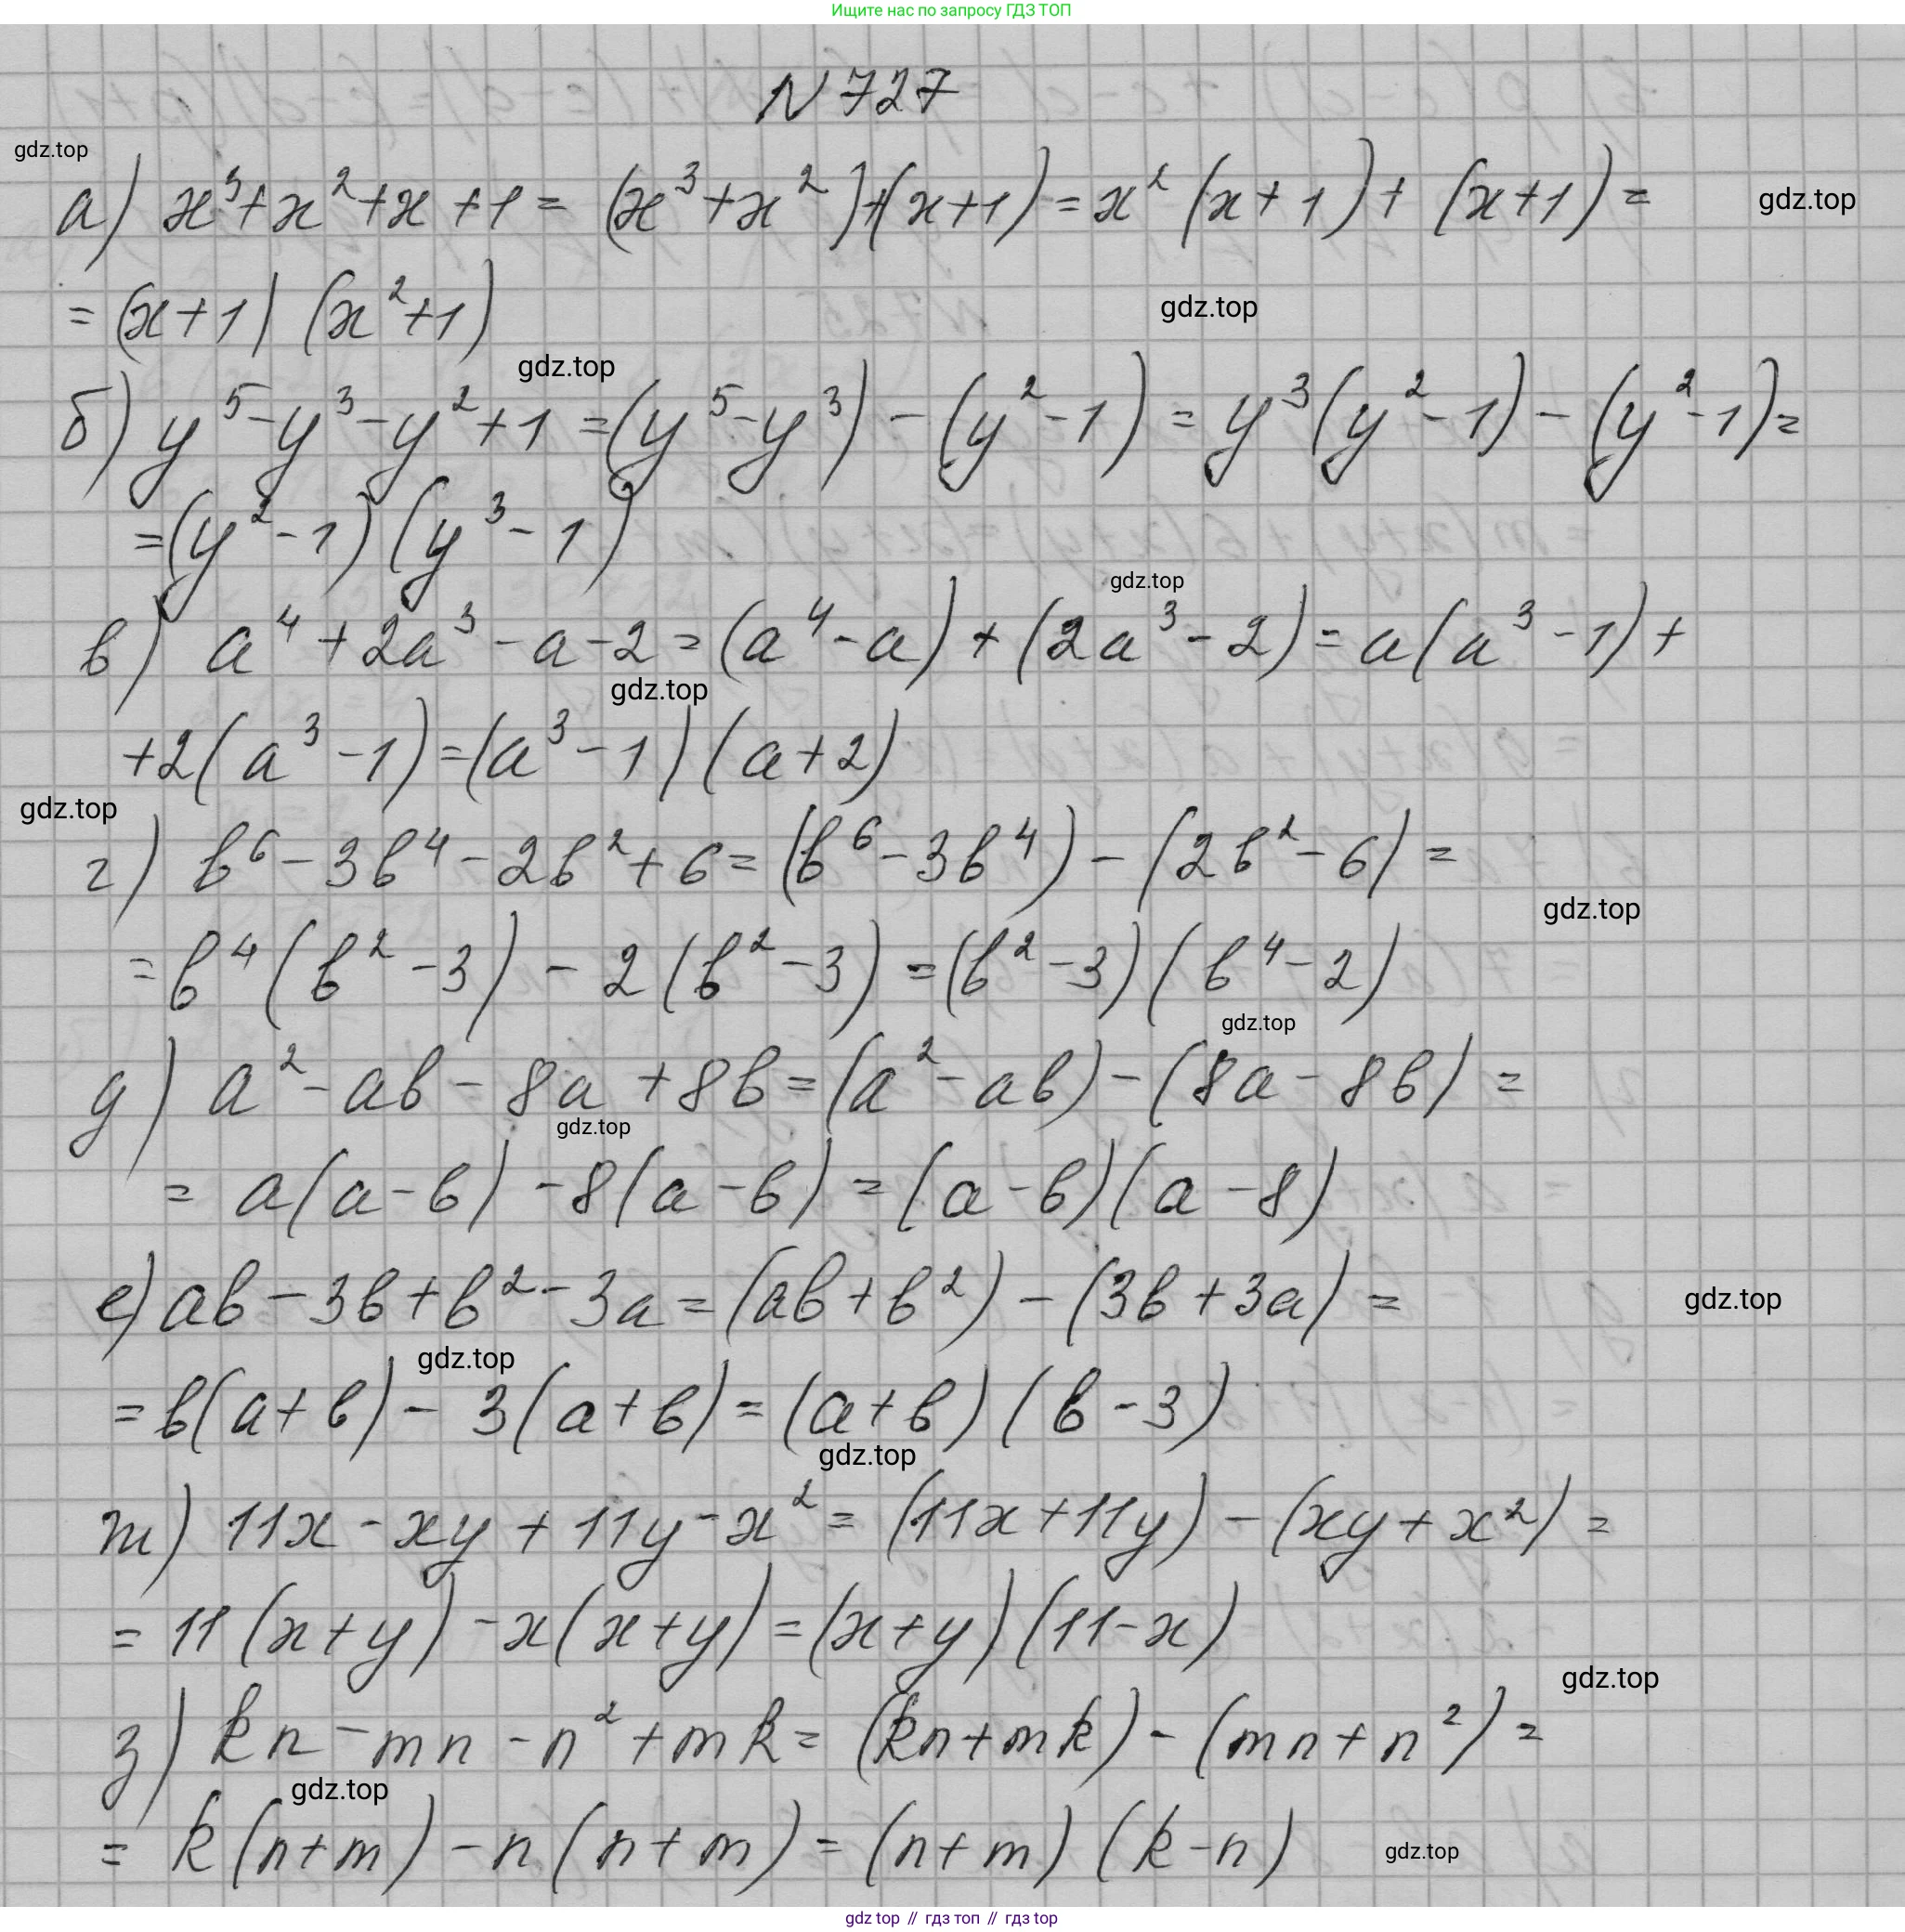 Ищите нас по запросу ГДЗ ТОП
N 727
gdz.top
а) x³+x²+x+1= (x³+x²)+(x+1)=x²(x+1)+ (x+1)=
gdz.top
=(x+1) (x²+1)
gdz.top
gdz.top
б) y⁵-y³-y²+1=(y⁵-y³)-(y²-1)=y³(y²-1)-(y²-1)=
=(y²-1)(y³-1)
gdz.top
в) a⁴+2a³-a-2=(a⁴-a)+(2a³-2)=a(a³-1)+
gdz.top
+2(a³-1)=(a³-1)(a+2)
gdz.top
г) b⁶-3b⁴-2b²+6=(b⁶-3b⁴)-(2b²-6)=
gdz.top
=b⁴(b²-3)-2(b²-3)=(b²-3)(b⁴-2)
gdz.top
д) a²-ab-8a+8b=(a²-ab)-(8a-8b)=
gdz.top
= a(a-b)-8(a-b)=(a-b)(a-8)
е) ab-3b+b²-3a=(ab+b²)-(3b+3a)=
gdz.top
gdz.top
=b(a+b)-3(a+b)=(a+b)(b-3)
gdz.top
ж) 11x-xy+11y-x²=(11x+11y)-(xy+x²)=
=11(x+y)-x(x+y)=(x+y)(11-x)
gdz.top
з) kn-mn-n²+mk=(kn+mk)-(mn+n²)=
gdz.top
= k(n+m)-n(n+m)=(n+m)(k-n)
gdz.top
gdz top // гдз топ // гдз top